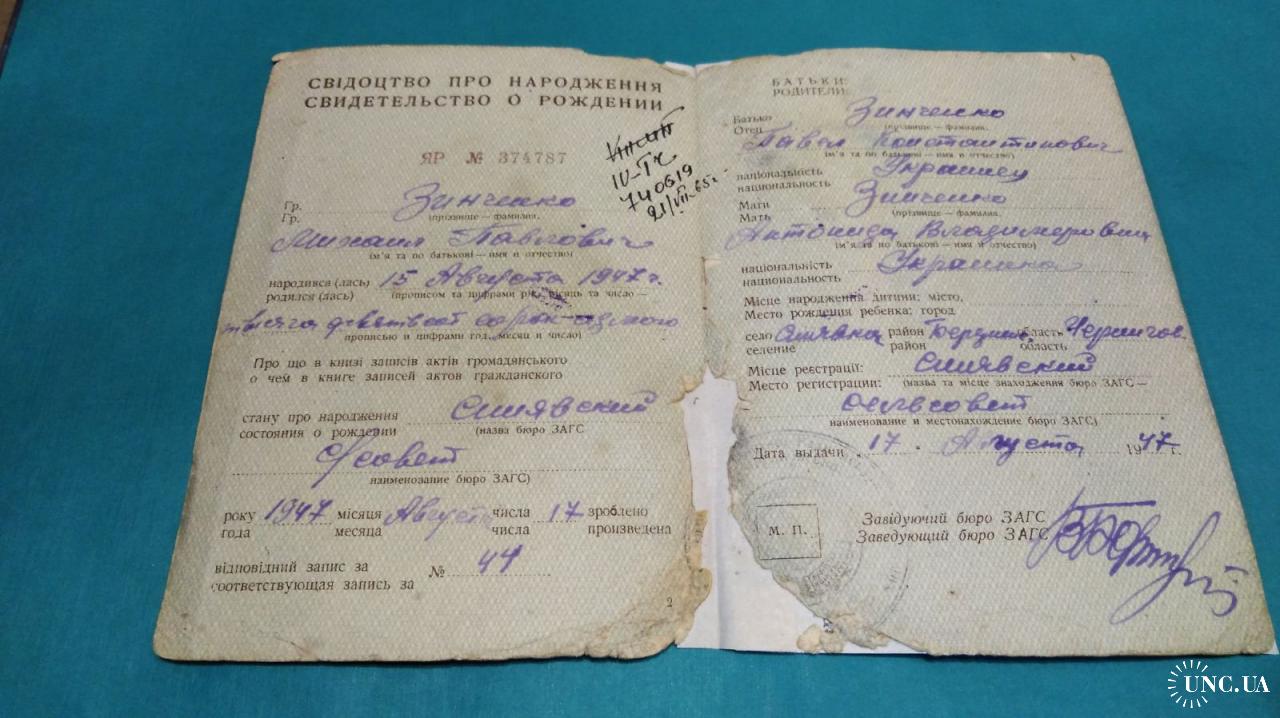 СВІДОЦТВО ПРО НАРОДЖЕННЯ
СВИДЕТЕЛЬСТВО О РОЖДЕНИИ
ЯР № 374787
IV-ТЧ
740619
21/VII-65г
Гр. Зинченко
Гр. (прізвище — фамилия.
Михаил Павлович
(ім'я та по батькові — имя и отчество)
народився (лась) 15 Августа 1947 г.
родился (лась) (прописом та цифрами рік, місяць та число —
тысяча девятьсот сорок седмого
прописью и цифрами год, месяц и число)
Про що в книзі записів актів громадянського
о чем в книге записей актов гражданского
стану про народження Синявский
состояния о рождении (назва бюро ЗАГС
С/совет
наименование бюро ЗАГС)
року 1947 місяця Августа числа 17 зроблено
года месяца числа произведена
відповідний запис за № 44
соответствующая запись за
2
БАТЬКИ:
РОДИТЕЛИ:
Батько Зинченко
Отец (прізвище — фамилия.
Павел Константинович
(ім'я та по батькові — имя и отчество)
національність Украинец
национальность
Мати Зинченко
Мать (прізвище — фамилия.
Антонида Владимеровна
(ім'я та по батькові — имя и отчество)
національність Украинка
национальность
Місце народження дитини: місто,
Место рождения ребенка: город
село район область Чернигов.
селение район область
Місце реєстрації: Синявский
Место регистрации: (назва та місце знаходження бюро ЗАГС —
сельсовет
наименование и местонахождение бюро ЗАГС)
Дата выдачи 17 Августа 1947 г.
М. П.
Завідуючий бюро ЗАГС
Заведующий бюро ЗАГС
UNC.UA